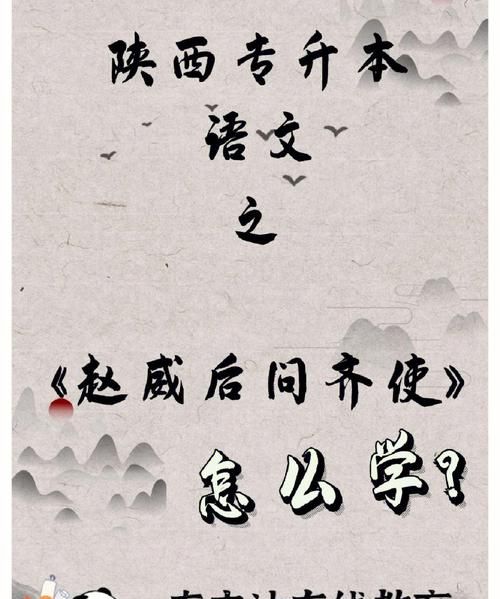 陕西专升本
语文
之
《赵威后问齐使》
怎么学?
在线教育